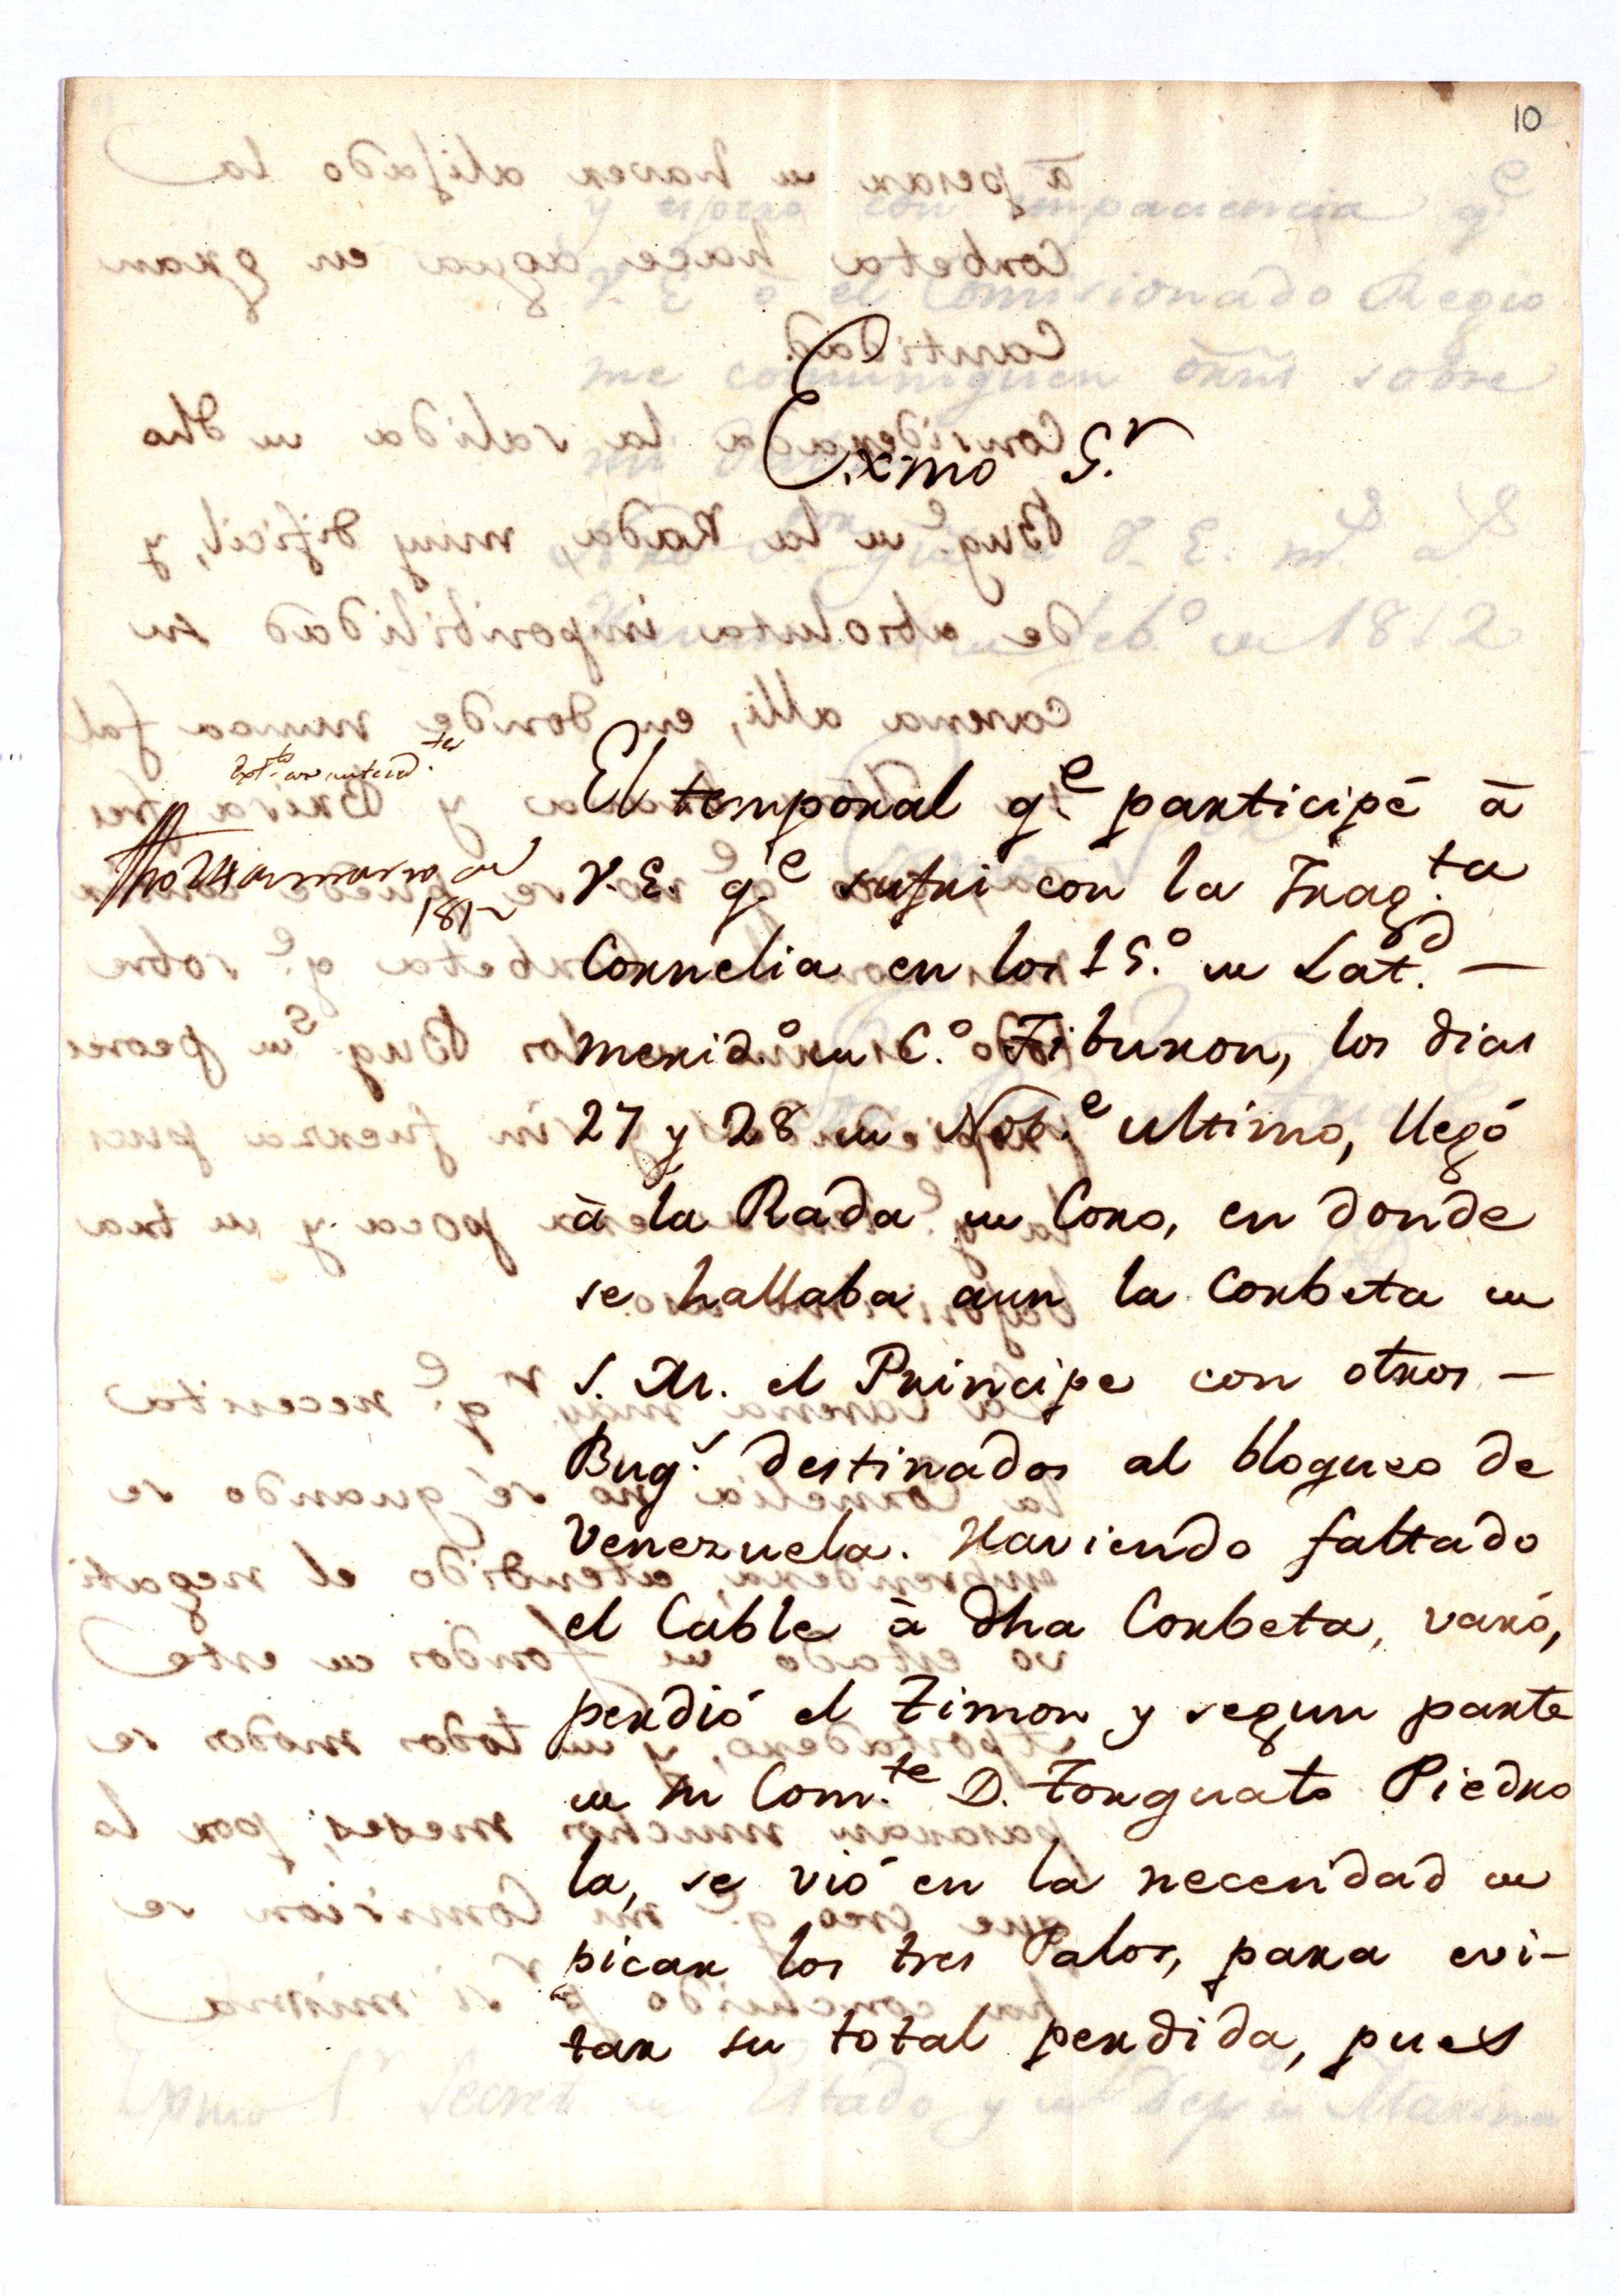 10
Exmo S.r
Ext.to con anteced.tes
fho 24 de marzo de
1812
El temporal q.e participé à
V.E. q.e sufri con la Frag.ta
Cornelia en los 15.° de Lat.d —
merid.° de C.° Tiburon, los dias
27 y 28 de Nob.e ultimo, llegó
à la Rada de Coro, en donde
se hallaba aun la Corbeta de
S. M. el Principe con otros —
Buq.s destinados al bloqueo de
Venezuela. Haviendo faltado
el Cable à dha Corbeta, varó,
perdió el Timon y segun parte
de su Com.te D. Torquato Piedro
la, se vió en la necesidad de
picar los tres Palos, para evi-
tar su total perdida, pues